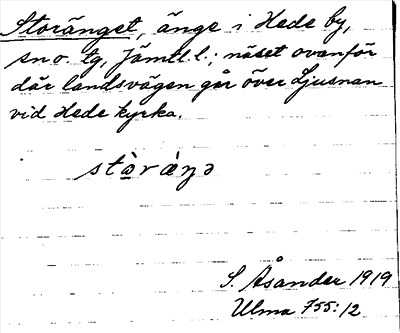 Storänget, änge i Hede by,
sn o. tg, Jämtl. l.; näset ovanför
där landsvägen går över Ljusnan
vid Hede kyrka.
stɷ̀ràŋə
S. Åsander 1919
Ulma 755:12